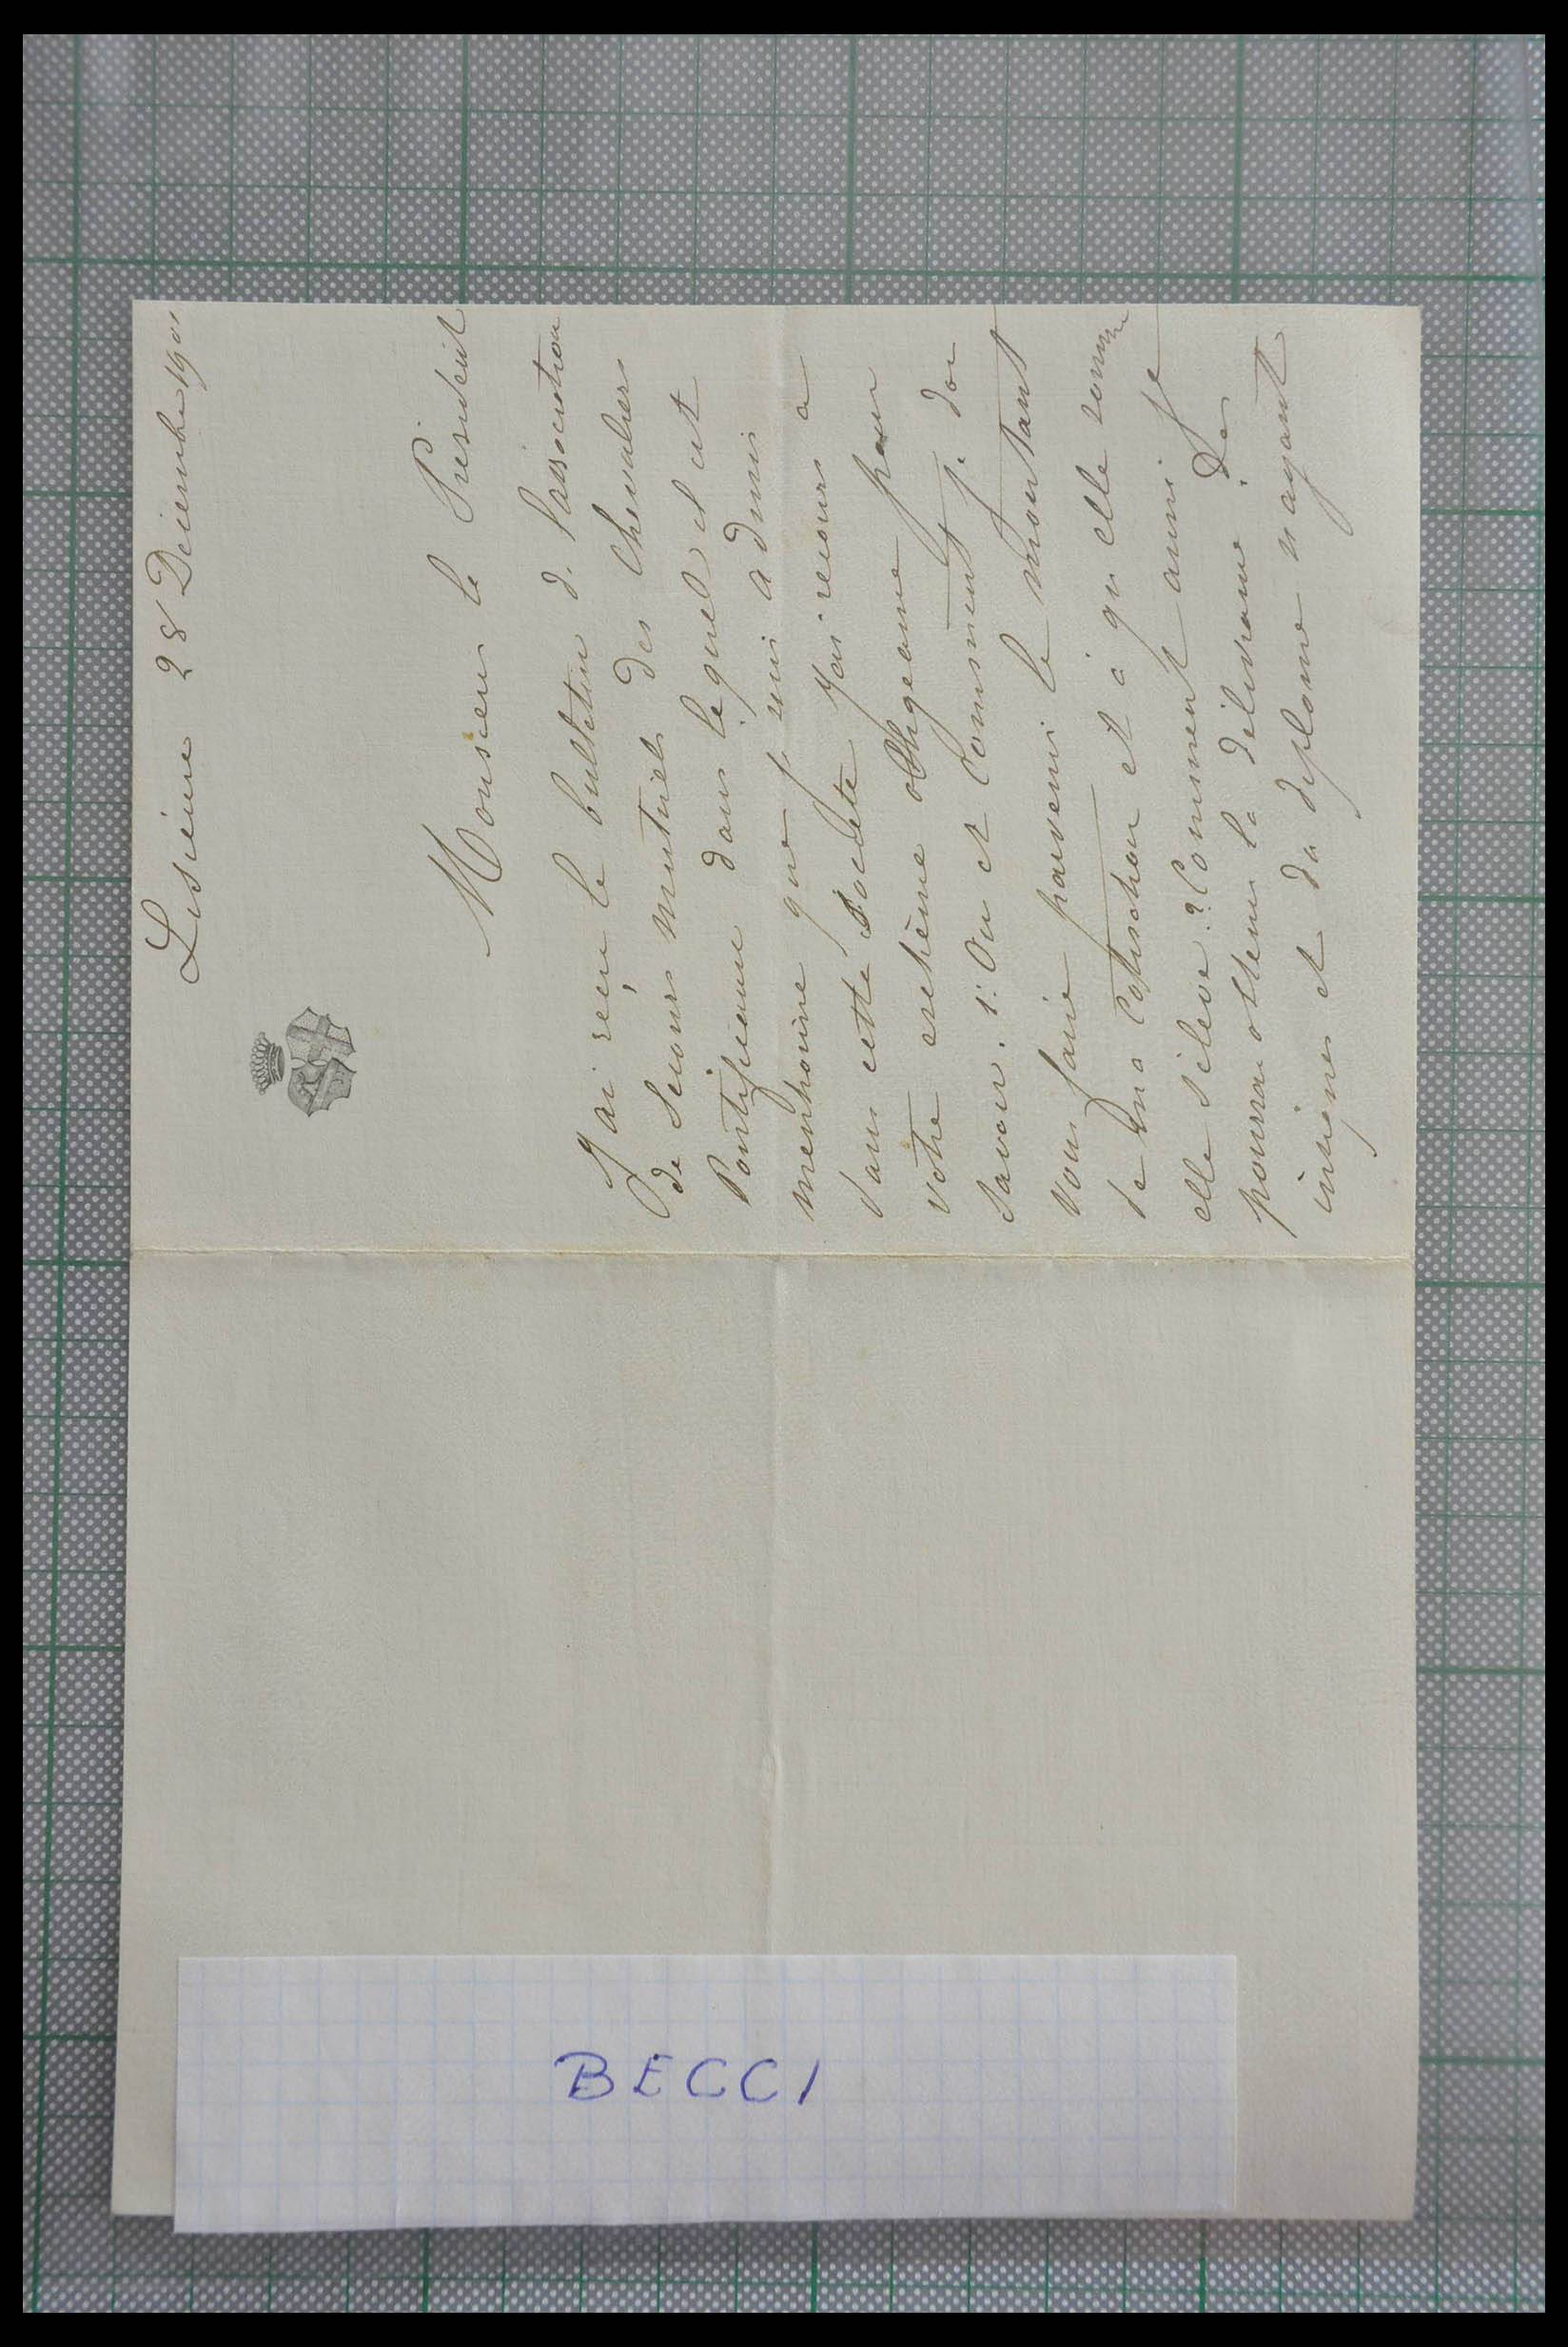 Lisième 28 Décembre 1901
Monsieur le Président
J'ai reçu le bulletin d. l'association
de secours mutuels des Chevaliers
Pontificaux dans lequel il est
mentionné que j. suis admis
dans cette société j'ai recours a
votre extrême obligeance pour
savoir. 1: Ou et Comment j. dois
vous faire parvenir le montant
de ma cotisation et à qu elle somme
elle s'éleve? Comment aussi je
pourrai obtenir la délivrance des
insignes et du diplome n'ayant
BECCI